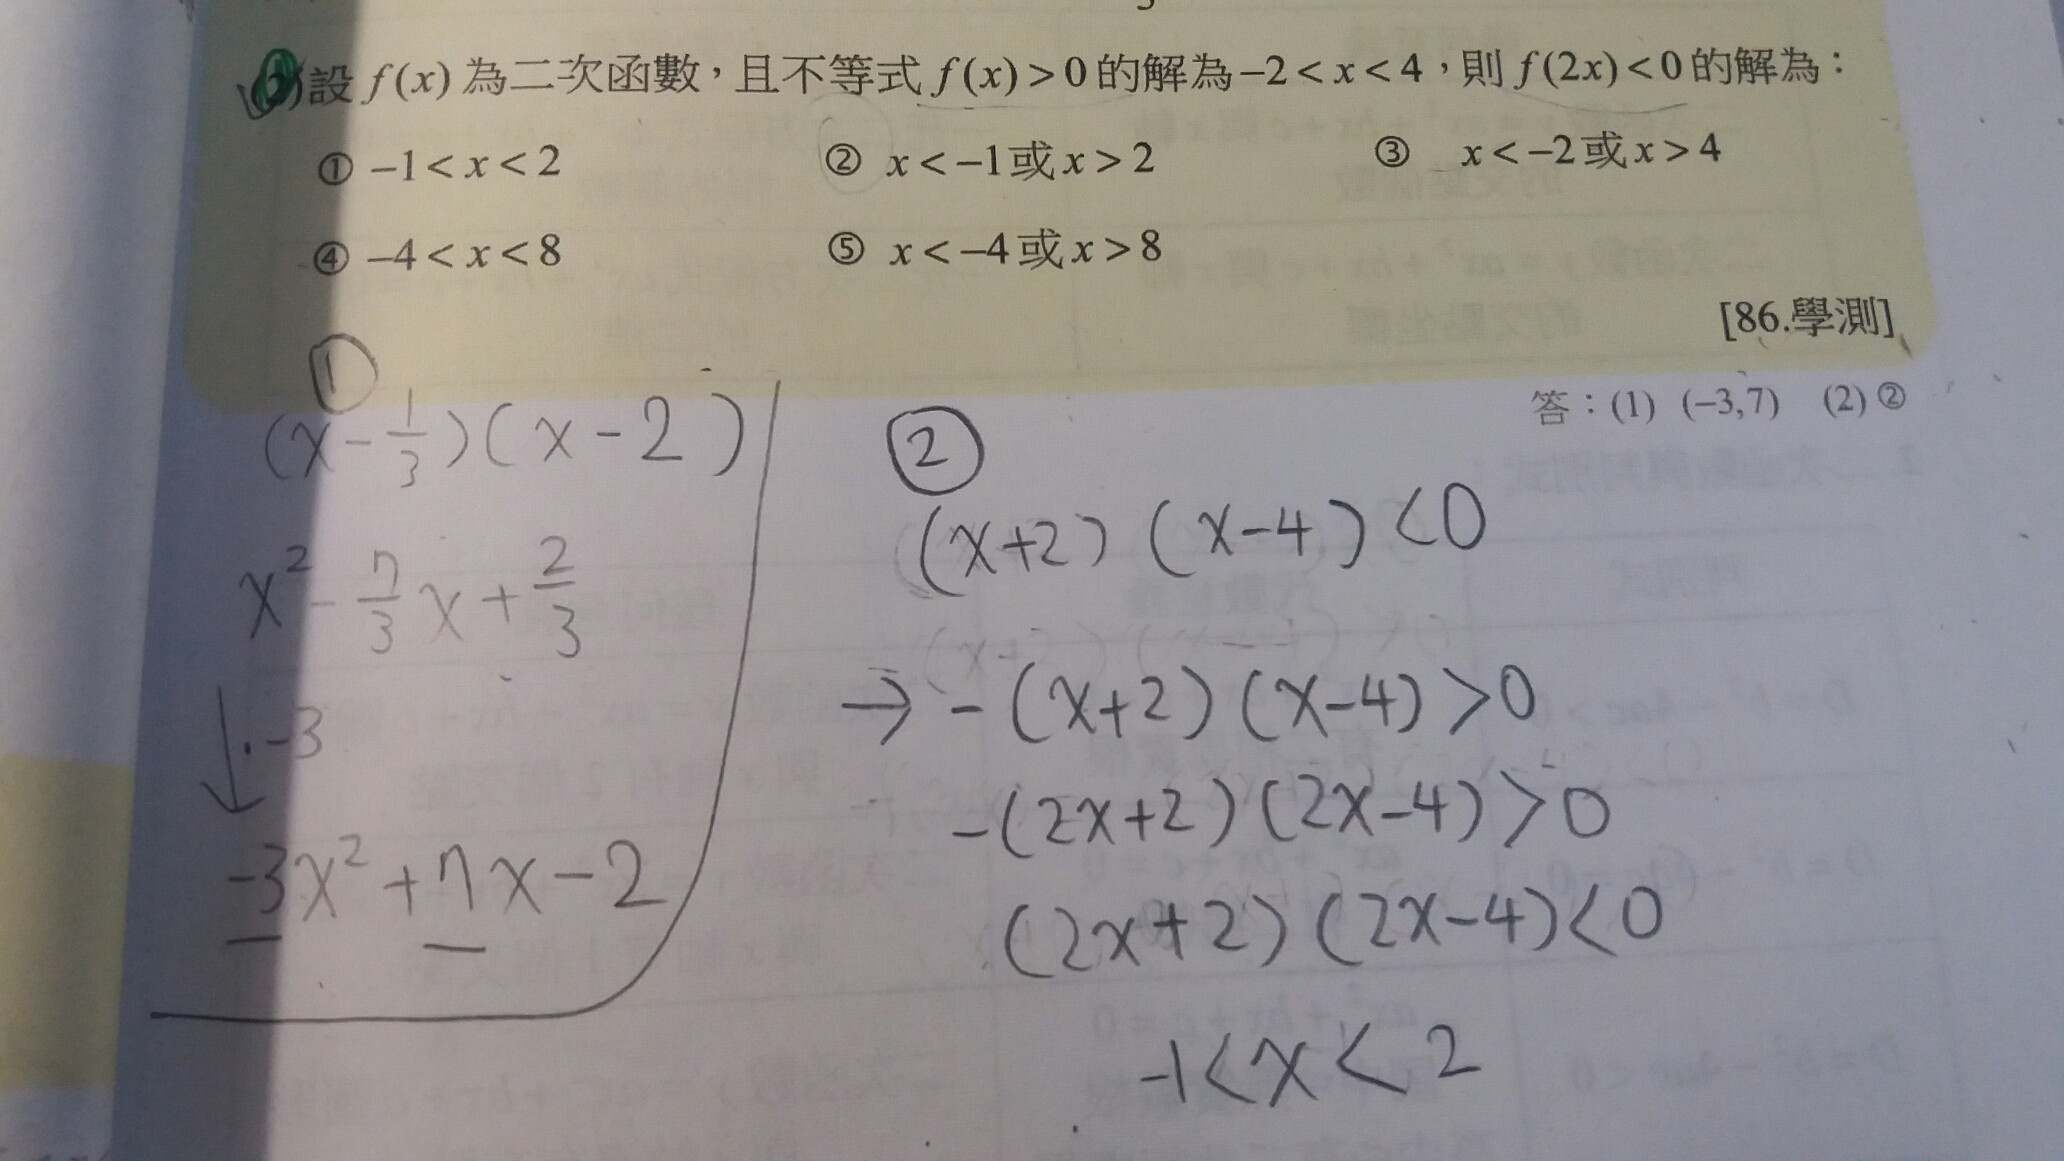 (2)設 f(x) 為二次函數，且不等式 f(x)>0 的解為 -2<x<4，則 f(2x)<0 的解為：
① -1<x<2 ② x<-1或x>2 ③ x<-2或x>4
④ -4<x<8 ⑤ x<-4或x>8
[86.學測]
答：(1) (-3,7) (2) ②
①
(x-1/3)(x-2)
x²-7/3x+2/3
↓·-3
-3x²+7x-2
②
(x+2)(x-4)<0
→ -(x+2)(x-4)>0
-(2x+2)(2x-4)>0
(2x+2)(2x-4)<0
-1<x<2